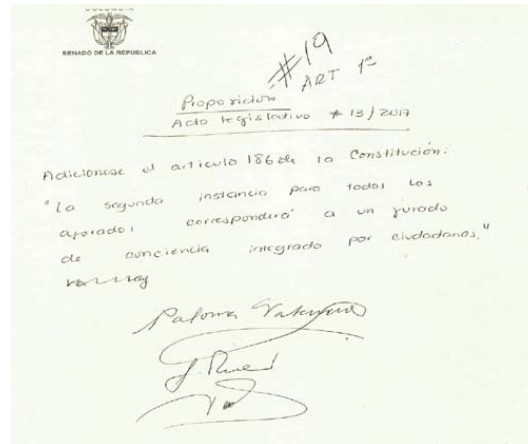 COLOMBIA
SENADO DE LA REPUBLICA
#19
ART 1º
Proposición
Acto legislativo # 13/2017
Adicionese el articulo 186 de la Constitución:
"La segunda instancia para todos los
aforados corresponderá a un jurado
de conciencia integrado por ciudadanos."
Paloma Valencia